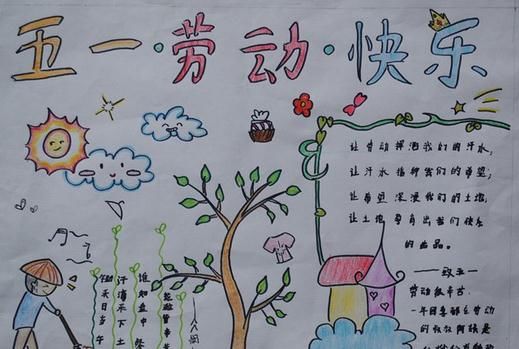 五一·劳动·快乐
让劳动挥洒我们的汗水,
让汗水指种我们的希望,
让希望浸漫我们的土地,
让土地孕育出我们快乐
的出品。
——致五一
劳动最辛苦
一年四季都在劳动
的叔叔阿姨是
锄禾日当午
汗滴禾下土
谁知盘中餐
粒粒皆辛苦